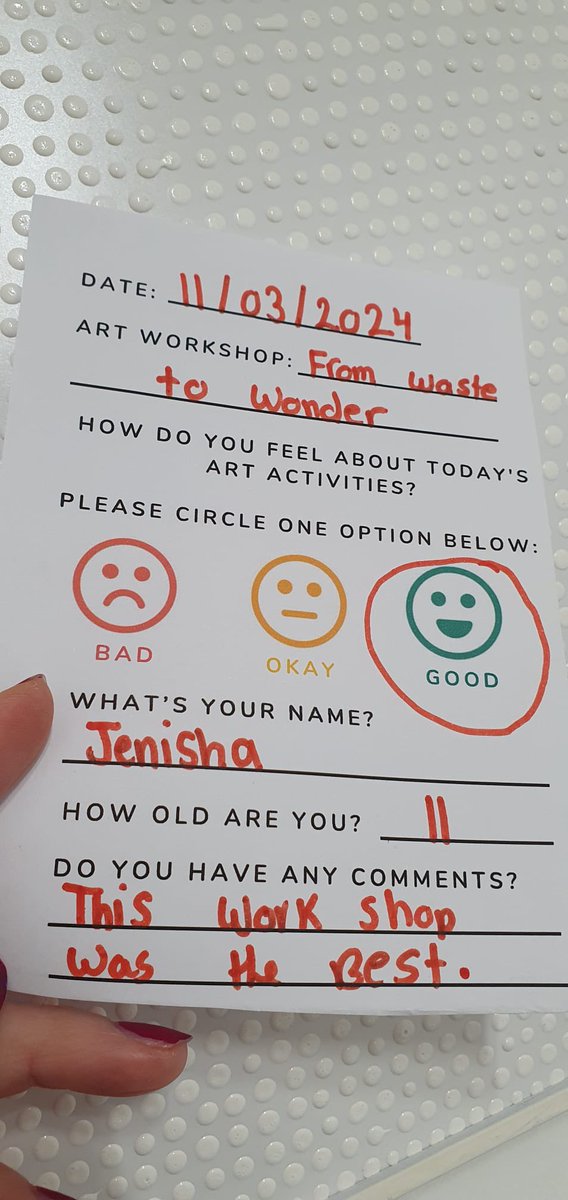 DATE: 11/03/2024
ART WORKSHOP: From waste
to wonder
HOW DO YOU FEEL ABOUT TODAY'S
ART ACTIVITIES?
PLEASE CIRCLE ONE OPTION BELOW:
BAD OKAY GOOD
WHAT'S YOUR NAME?
Jenisha
HOW OLD ARE YOU? 11
DO YOU HAVE ANY COMMENTS?
This work shop
was the Best.